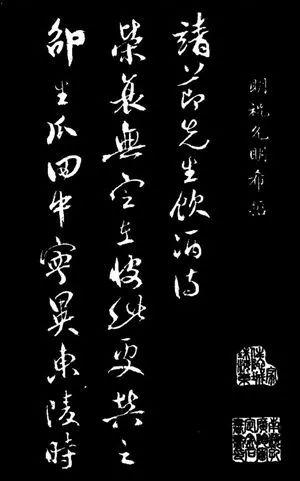 明祝允明希哲
靖节先生饮酒诗
榮衰無定在彼此更共之
邵生瓜田中寧異東陵時